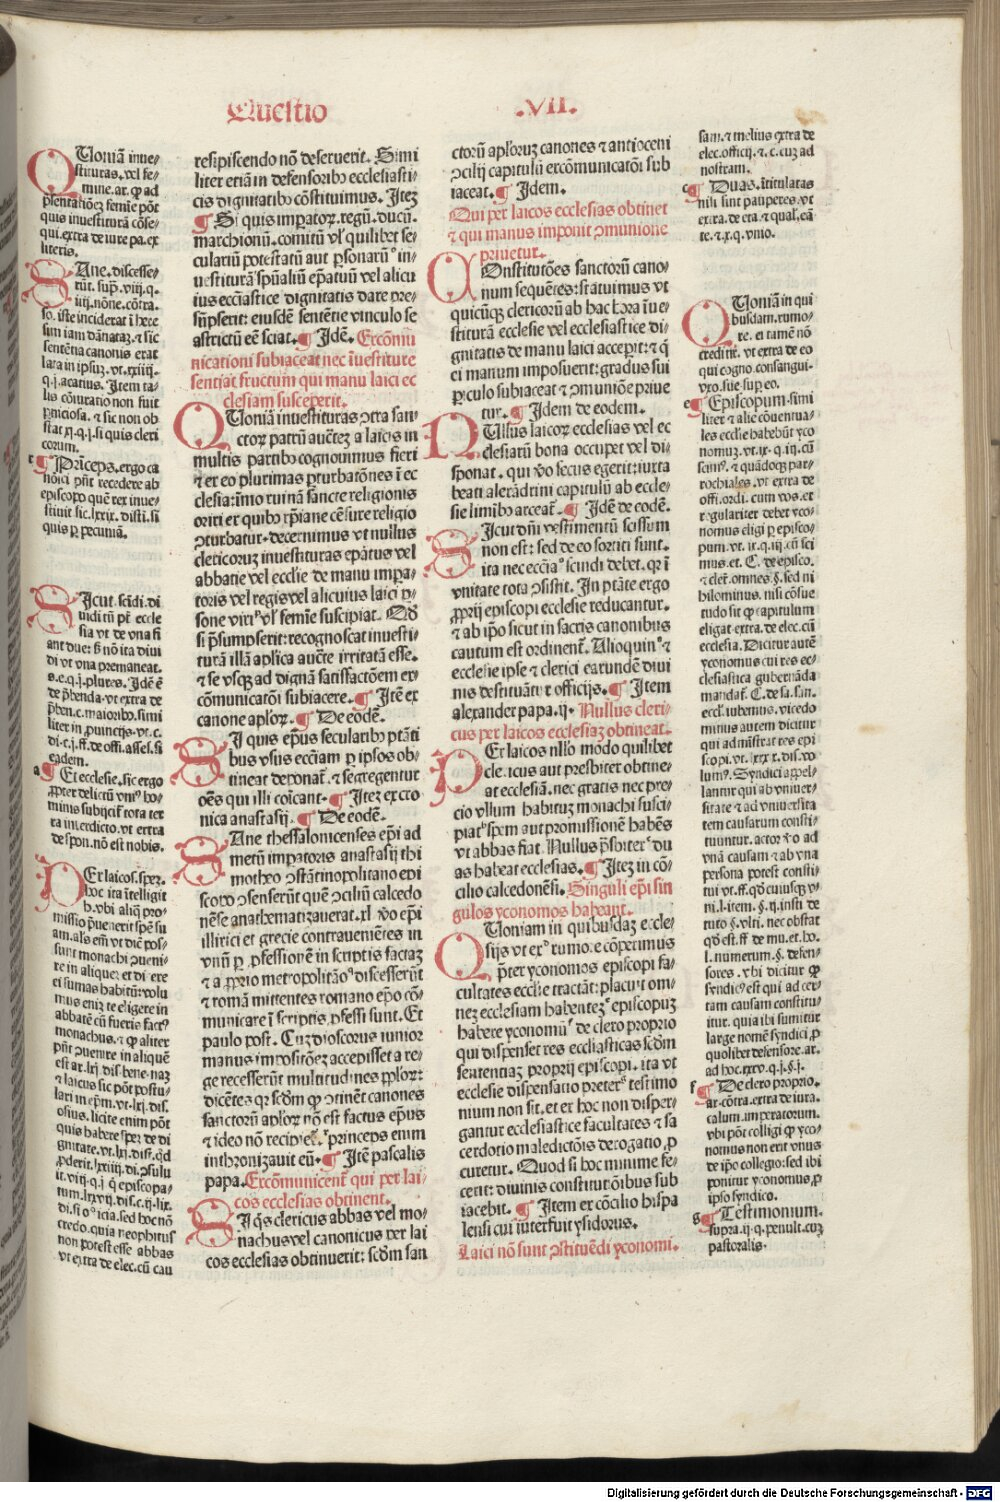 Questio .VII.
QUoniā inue/
stituras. vel fe/
mine. ar. ꝙ ad
p̄sentatiōez femīe pōt
quis inuestiturā cōse/
qui. extra de iure pa. ex
literis.
SAne. discesse/
rūt. sup̄. viij. q.
iiij. nōne. cōtra.
so. iste inciderat ī here
sum iam dānataz. ⁊ sic
sententia canonis erat
lata in ipsuz. vt. xxiiij.
q. j. acatius. Item ta/
lis cōiuratio non fuit
perniciosa. ⁊ sic non ob
stat xj. q. j. si quis cleri
corum.
¶ Princeps. ergo ca
nōici pn̄t recedere ab
episcopo quē rex inue/
stiuit sic. lxxix. disti. si
quis p̱ pecuniā.
SIcut. scīdi. di
uidi tn̄ pt̄ eccle
sia vt de vna fi
ant due: s̄ nō ita diui
di vt vna premaneat.
s. e. q. j. plures. Idē ē
de p̄benda. vt extra de
p̄ben. c. maiorib. simi
liter in prouincijs. vt. c.
di. c. j. ff. de offi. asses. si
eadem.
a ¶ Et ecclesie. sic ergo
ꝓpter delictū vniꝰ ho/
minis subijcit tota ter
ra interdicto. vt extra
de spon. nō est nobis.
PEr laicos. spez.
hoc ita ītelligit
h. vbi aliq̄ pro/
missio p̄uenerit spē su
am. als em̄ vt diē pos/
sunt monachi ꝯueni/
re in aliquē: et di ere
ei sumas habitū: volu
mus eniz te eligere in
abbatē cū fueris factꝰ
monachus. ⁊ ꝙ aliter
pn̄t ꝯuenire in aliquē
est ar. lxj. dis. bene. naz
⁊ laicus sic pōt postu/
lari in ep̄m. vt. lxj. dis.
osius. licite enim pōt
quis habere spez de di
gnitate. vt. lxj. dist. qd
ꝓderit. lxxiiij. di. ꝯsulu
it. viij. q. j. q̄ episcopa/
tum. lxxvij. dis. c. ij. lix.
di. si oꝰicia. sed hoc nō
credo. quia neophitus
non potest esse abbas
vt extra de elec. cū cau
resipiscendo nō deseruerit. Simi
liter etiā in defensorib ecclesiasti/
cis dignitatib cōstituimus. Itez
¶ Si quis imꝑator. regū. ducū.
marchionū. comitū vl̓ quilibet se/
cularium potestatū aut ꝑsonarū ꝰ in/
uestiturā sp̄ualiū ep̄atuū vel alicu
ius ecciastice dignitatis dare pre/
sūpserit: eiusdē sentētie vinculo se
astrictū eē sciat. ¶ Idē. Excōmu
nicationi subiaceat nec īuestiture
sentiat fructum qui manu laici ec
clesiam susceperit.
QUoniā inuestituras ꝯtra san/
ctor patrū auctez a laicis in
multis partib cognouimus fieri
⁊ ex eo plurimas ꝑturbatōnes ī ec
clesia: īmo ruinā sancte religionis
oriri ex quib xp̄iane cēsure religio
ꝯturbatur: decernimus vt nullus
clericoruz inuestituras ep̄atus vel
abbatie vel ecclie de manu imꝑa/
toris vel regis vel alicuius laici ꝑ/
sone viriꝰ vl̓ femīe suscipiat. Qd̓
si p̄sumpserit: recognoscat inuesti/
turā illā aplica auctē irritatā esse.
⁊ se vsqꝫ ad dignā satisfactōem ex
cōmunicatōi subiacere. ¶ Itē ex
canone aplor. ¶ De eodē.
SI quis ep̄us secularib ptāti
bus vsus ecciam ꝑ ipsos ob/
tineat deponat. ⁊ segregentur
oēs qui illi coīcant. ¶ Itez ex cro
nica anastasij. ¶ De eodē.
SAne thessalonicenses ep̄i ad
metū imꝑatoris anastasij thi
motheo ꝯstātinopolitano epi
scopo ꝯsenserūt quē ꝯciliū calcedo
nēse anathematizauerat. xl. vo ep̄i
illirici et grecie contrauenietes in
vnū ꝑ ꝓfessionē in scriptis factaz
⁊ a ꝓprio metropolitāo discesserūt
⁊ romā mittentes romano ep̄o cō/
municare ī scriptis ꝓfessi sunt. Et
paulo post. Cuz dioscorus iunior
manus impositōez accepisset a re/
ge recesserūt multitudines pplor:
dicētes qz scdm ꝙ ꝯtinēt canones
sanctorū aplor nō est factus ep̄us
⁊ ideo nō recipiet. princeps enim
inthronizauit eū. ¶ Itē pascalis
papa. Excōmunicent̄ qui per lai/
cos ecclesias obtinent.
SI q̄s clericus abbas vel mo/
nachus vel canonicus per lai
cos ecclesias obtinuerit: scdm san
ctorū aplorꝫ canones ⁊ antioceni
ꝯcilij capitulū excōmunicatōi sub
iaceat. ¶ Idem.
Qui per laicos ecclesias obtinet
⁊ qui manus imponit ꝯmunione
priuetur.
COnstitutōes sanctorū cano/
num sequētes: statuimus vt
quicūqꝫ clericorū ab hac hora īue/
stiturā ecclesie vel ecclesiastice di/
gnitatis de manu laici acceperit: ⁊ q̄
ei manum imposuerit: gradus sui
ꝑiculo subiaceat ⁊ ꝯmuniōe priue
tur. ¶ Idem de eodem.
NUllus laicor ecclesias vel ec
clesiarū bona occupet vel di/
sponat. qui vo secus egerit: iuxta
beati alexādrini capitulū ab eccle/
sie limīb arceat. ¶ Idē de eodē.
SIcut dn̄i vestimentū scissum
non est: sed de eo sortiti sunt.
ita nec ecciaꝰ scindi debet. qz ī
vnitate tota ꝯsistit. In ptāte ergo
ꝓprij episcopi ecclesie reducantur.
⁊ ab ip̄o sicut in sacris canonibus
cautum est ordinent̄. Alioquinꝰ ⁊
ecclesie ipse ⁊ clerici earundē diui
nis destituantur officijs. ¶ Item
alexander papa. ij. Nullus cleri/
cus per laicos ecclesiaz obtineat.
PEr laicos nllo modo quilibet
clericus aut presbiter obtine/
at ecclesiā. nec gratis nec pre/
cio vllum habituz monachi susci/
piatꝰ spem aut promissionē habēs
vt abbas fiat. Nullus p̄sbiterꝰ du
as habeat ecclesias. ¶ Itez in cō/
cilio calcedonēsi. Singuli ep̄i sin
gulos yconomos habeant.
QUoniam in quibusdaz eccle/
sijs vt exꝰ rumore cōperimus
p̄ter yconomos episcopi fa/
cultates ecclie tractāt: placuit om/
nez ecclesiam habentezꝰ episcopuz
habere yconomūꝰ de clero proprio
qui dispenset res eccliasticas scdm
sententiaz proprij episcopi. ita vt
ecclesie dispensatio preterꝰ testimo
nium non sit. et ex hoc non disper/
gantur ecclesiastice facultates ⁊ sa
cerdotio maledictōis derogatio ꝓ
curetur. Quod si hoc minime fe/
cerit: diuinis constitutōibus sub
iacebit. ¶ Item ex cōcilio hispa
lensi cui īterfuit ysidorus.
Laici nō sunt ꝯstituēdi yconomi.
sam. ⁊ melius extra de
elec. officij. ⁊. c. cuz ad
nostram.
c ¶ Duas. ītitulatas
nisi sint pauperes. vt
extra. de eta. ⁊ qual. eā
te. ⁊. x. q. vnio.
QUoniā in qui
busdam. rumo/
re. ei tamē nō
credit̄. vt extra de eo
qui cogno. consangui/
vxo. sue sup eo.
e ¶ Episcopum. simi
liter ⁊ alie cōuentua/
les ecclie habebūt yco
nomuz. vt. ix. q. iij. cū
scimꝰ. ⁊ quādoqꝫ par/
rochiales. vt extra de
offi. ordi. cum vos. et
regulariter debet yco/
nomus eligi ꝑ episco/
pum. vt. ix. q. iij. cū sci
mus. et. C. de episco.
⁊ cleri. omnes. §. sed ni
hilominus. nisi cōsue
tudo sit ꝙ capitulum
eligat. extra. de elec. cū
ecclesia. Dicitur autē
yconomus cui res ec/
clesiastica gubernāda
mandat̄. C. de sa. san.
eccl. iubemus. vicedo
minus autem dicitur
qui admistrat res epi
scopi. vt. lxxxix. dis. vo
lumꝰ. Syndici appel/
lantur qui ab vniuer/
sitate ⁊ ad vniuersita
tem causarum consti/
tuuntur. actor vo ad
vnā causam ⁊ ab vna
persona potest consti/
tui vt. ff. qd̓ cuiusqꝫ v/
ni. l. item. §. ij. insti. de
tuto §. vlti. nec obstat
qd̓ est. ff. de mu. et. ho.
l. numerum. §. defen/
sores. vbi dicitur ꝙ
syndicꝰ est qui ad cer/
tam causam constitu/
itur. quia ibi sumitur
large nomē syndici ꝓ
quolibet defensore. ar.
ad hoc. xxv. q. j. §. j.
f ¶ De clero proprio.
ar. cōtra. extra de iura.
calum. imperatorum.
vbi pōt colligi ꝙ yco/
nomus non erit vnus
de ip̄o collegio: sed ibi
ponitur yconomus ꝓ
ipso syndico.
g ¶ Testimonium.
supra. ij. q. penult. cuz
pastoralis.
Digitalisierung gefördert durch die Deutsche Forschungsgemeinschaft - DFG